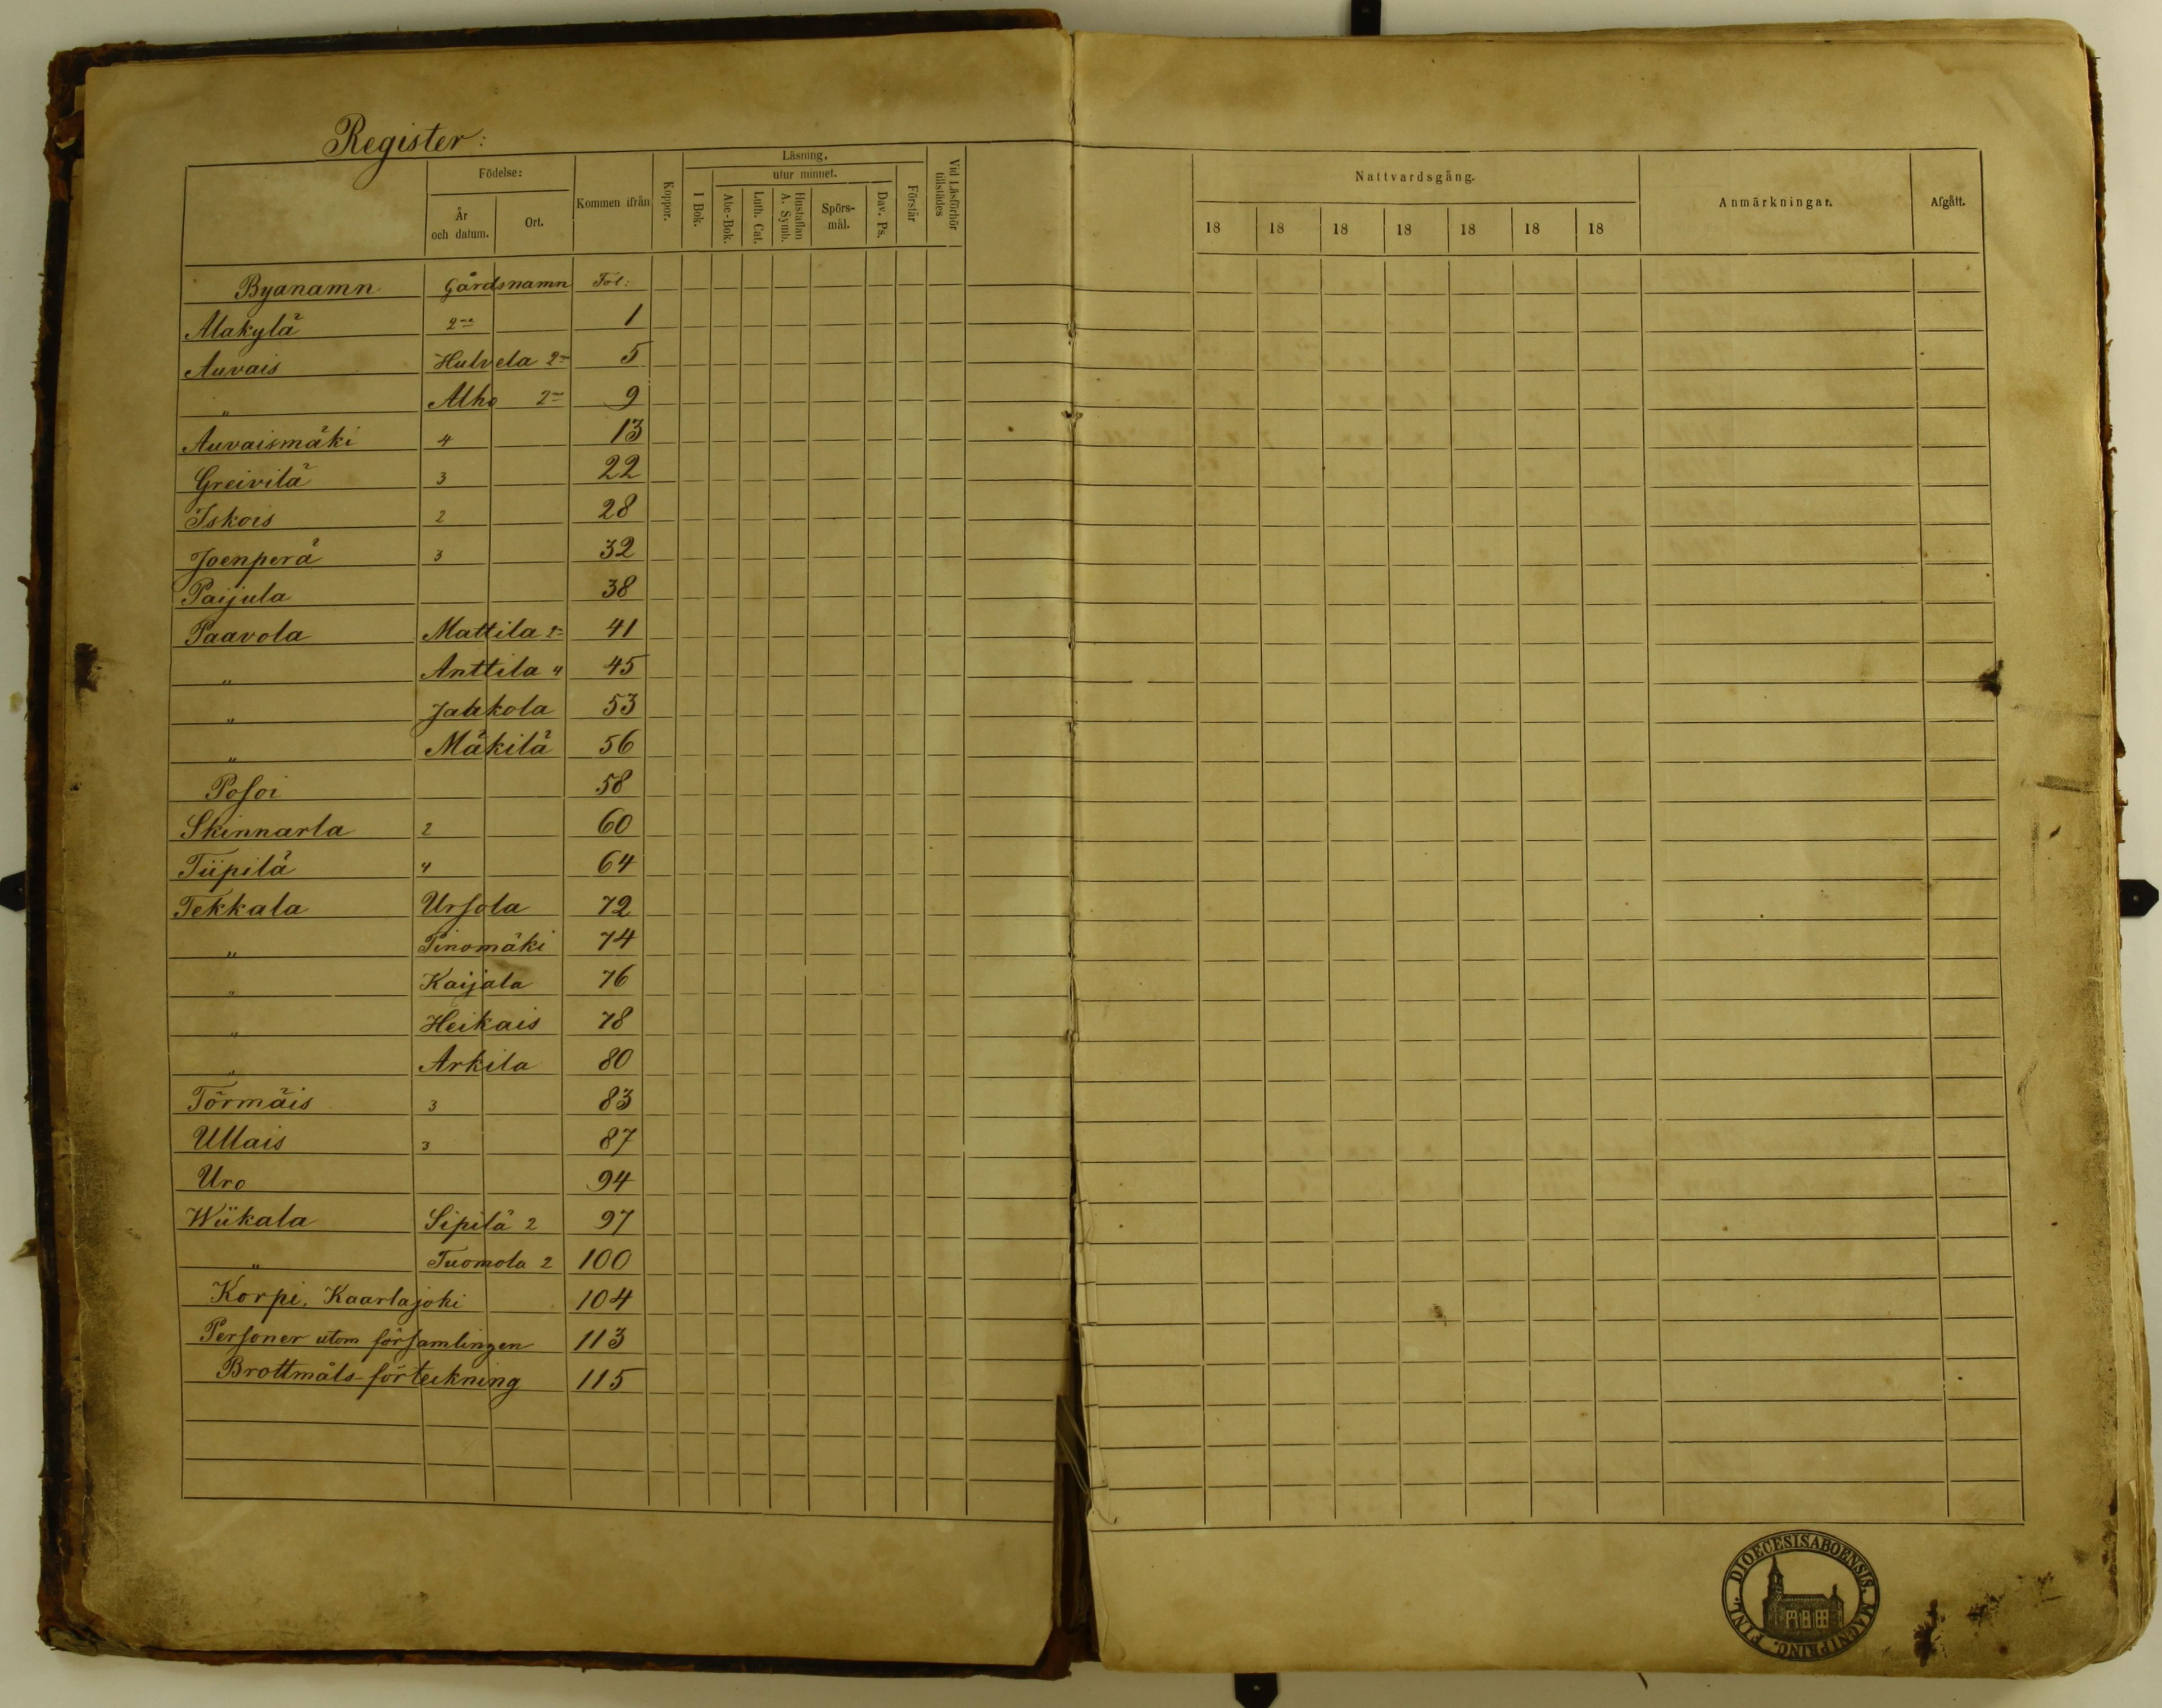 Register:
Födelse:
År och datum.
Ort.
Kommen ifrån
Koppor.
Läsning.
utur minnet.
I Bok.
Abc-Bok.
Luth. Cat.
Hustaflan A. Symb.
Spörs-mål.
Dav. Ps.
Förstår
Vid Läsförhör tillstädes
Nattvardsgång.
18 18 18 18 18 18 18
Anmärkningar.
Afgått.
Byanamn Gårdsnamn Fol:
Alakylä 2ne 1
Auvais Hulvela 2ne 5
„ Alho 2ne 9
Auvaismäki 4 13
Greivilä 3 22
Iskois 2 28
Joenperä 3 32
Paijula 38
Paavola Mattila 2ne 41
„ Anttila 4 45
„ Jaakola 53
„ Mäkilä 56
Posoi 58
Skinnarla 2 60
Tiipilä 4 64
Tekkala Ursola 72
„ Pinomäki 74
„ Kaijala 76
„ Heikais 78
„ Arkila 80
Törmäis 3 83
Ullais 3 87
Uro 94
Wiikala Sipilä 2 97
„ Tuomola 2 100
Korpi, Kaarlajoki 104
Personer utom församlingen 113
Brottmåls-förteckning 115
DIOECESIS ABOENSIS. MAGNI PRINC. FINL.